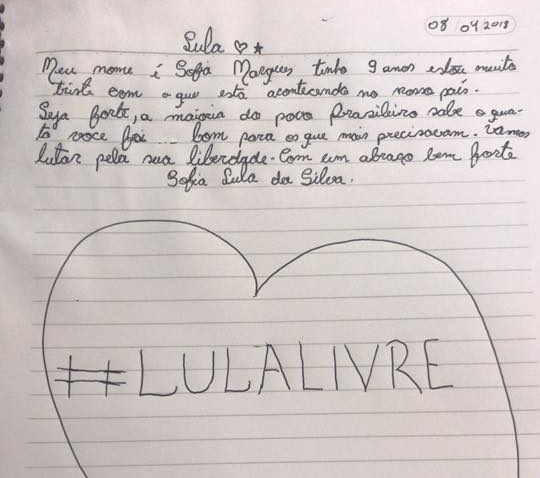 08/04 2018
Lula ♡★
Meu nome é Sofia Marques tenho 9 anos estou muito
triste com o que está acontecendo no nosso país.
Seja forte, a maioria do povo brasileiro sabe o qua-
to voce foi bom para os que mais precisavam. Vamos
lutar pela sua liberdade. Com um abraço bem forte
Sofia Lula da Silva.
#LULALIVRE